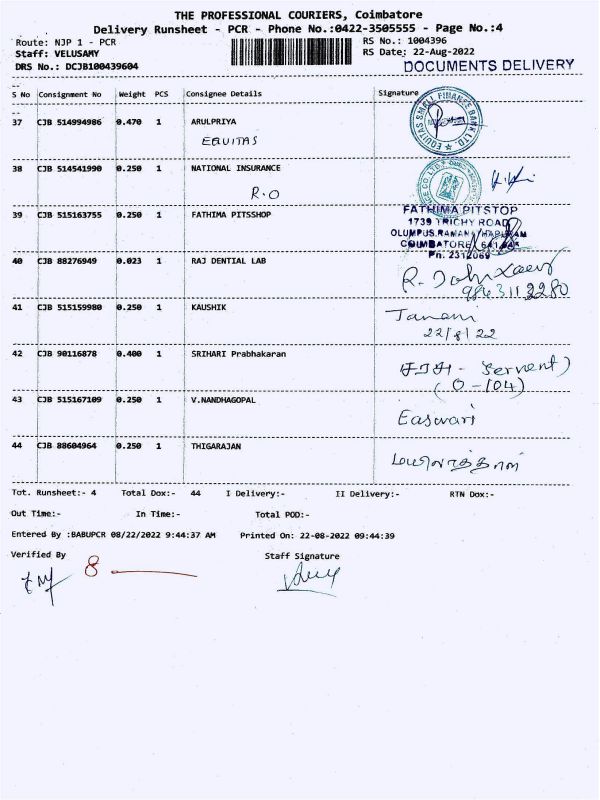 THE PROFESSIONAL COURIERS, Coimbatore
Delivery Runsheet - PCR - Phone No.:0422-3505555 - Page No.:4
Route: NJP 1 - PCR
RS No.: 1004396
Staff: VELUSAMY
RS Date: 22-Aug-2022
DRS No.: DCJB100439604
DOCUMENTS DELIVERY
S No Consignment No Weight PCS Consignee Details Signature
37 CJB 514994986 0.470 1 ARULPRIYA
EQUITAS
EQUITAS SMALL FINANCE BANK LTD.
38 CJB 514541990 0.250 1 NATIONAL INSURANCE
R.O
39 CJB 515163755 0.250 1 FATHIMA PITSSHOP
FATHIMA PITSTOP
1739 TRICHY ROAD
COIMBATORE
Ph: 2312069
40 CJB 88276949 0.023 1 RAJ DENTIAL LAB
9843112280
41 CJB 515159980 0.250 1 KAUSHIK
22/8/22
42 CJB 90116878 0.400 1 SRIHARI Prabhakaran
- Servent)
(O-104)
43 CJB 515167109 0.250 1 V.NANDHAGOPAL
Easwari
44 CJB 88604964 0.250 1 THIGARAJAN
Tot. Runsheet:- 4 Total Dox:- 44 I Delivery:- II Delivery:- RTN Dox:-
Out Time:- In Time:- Total POD:-
Entered By :BABUPCR 08/22/2022 9:44:37 AM Printed On: 22-08-2022 09:44:39
Verified By Staff Signature
8